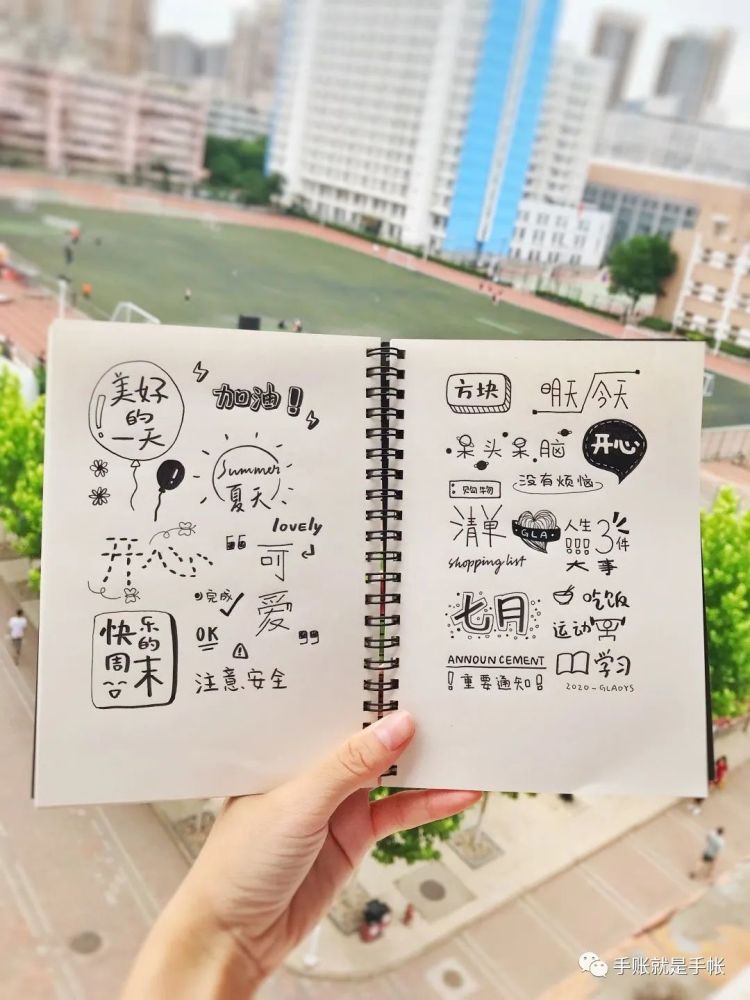 美好
的
一天
加油!
Summer
夏天
开心
lovely
可
爱
完成
OK
快乐
的
周末
注意安全
方块
明天/今天
呆头呆脑
开心
购物
没有烦恼
清单
GLA
shopping list
人生
!!! 3件
大事
七月
吃饭
运动
ANNOUNCEMENT
!重要通知!
学习
2020-GLADYS
手账就是手帐